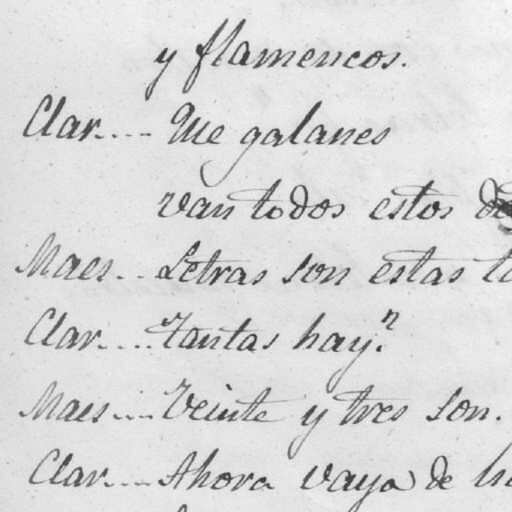 y flamencos.
Clar.... Que galanes
van todos estos
Maes.. Letras son estas
Clar.... Tantas hay.n
Maes.... Veinte y tres son.
Clar.... Ahora vaya de